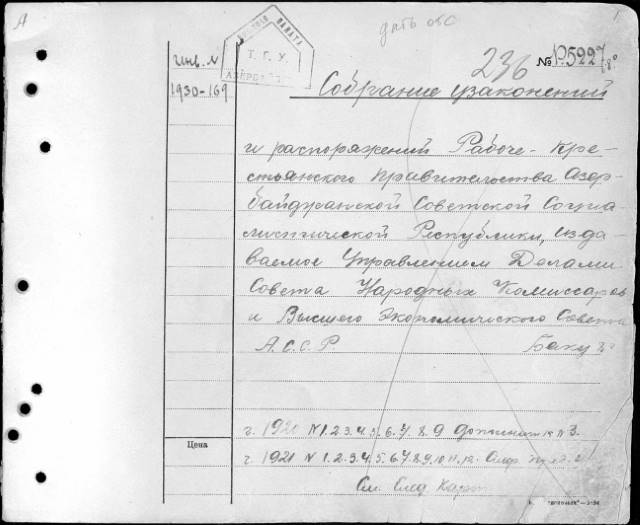 А
дать обс
КНИЖНАЯ ПАЛАТА
Т. Г. У.
АЗЕРБ
236
№ Р5227/8°
Инв. №
1930-169
Собрание узаконений
и распоряжений Рабоче-Кре-
стьянского Правительства Азер-
байджанской Советской Социа
листической Республики, изда
ваемое Управлением Делами
Совета Народных Комиссаров
и Высшего Экономического Совета
А.С.С.Р. Баку
г. 1920 № 1.2.3.4.5.6.7.8.9 дополнит к № 3.
Цена
г. 1921 № 1.2.3.4.5.6.7.8.9.10.11.12.
См. След карт